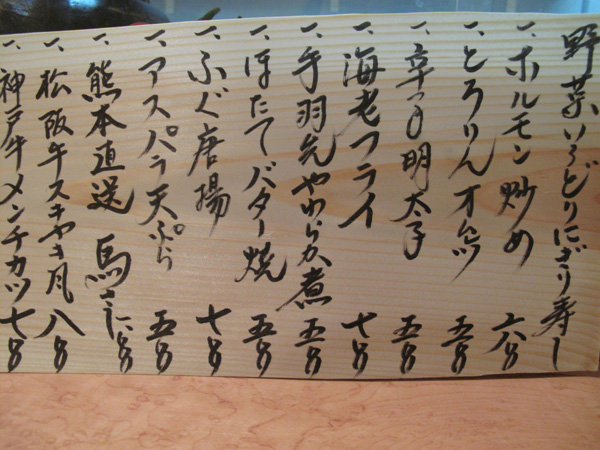 野菜いろどりにぎり寿し
一、ホルモン炒め 六8
一、とろりんオムレツ 五8
一、辛子明太子 五8
一、海老フライ 七8
一、手羽先やわらか煮 五8
一、ほたてバター焼 五8
一、ふぐ唐揚 七8
一、アスパラ天ぷら 五8
一、熊本直送 馬さし 8
一、松阪牛スキヤキ風 八8
一、神戸牛メンチカツ 七8